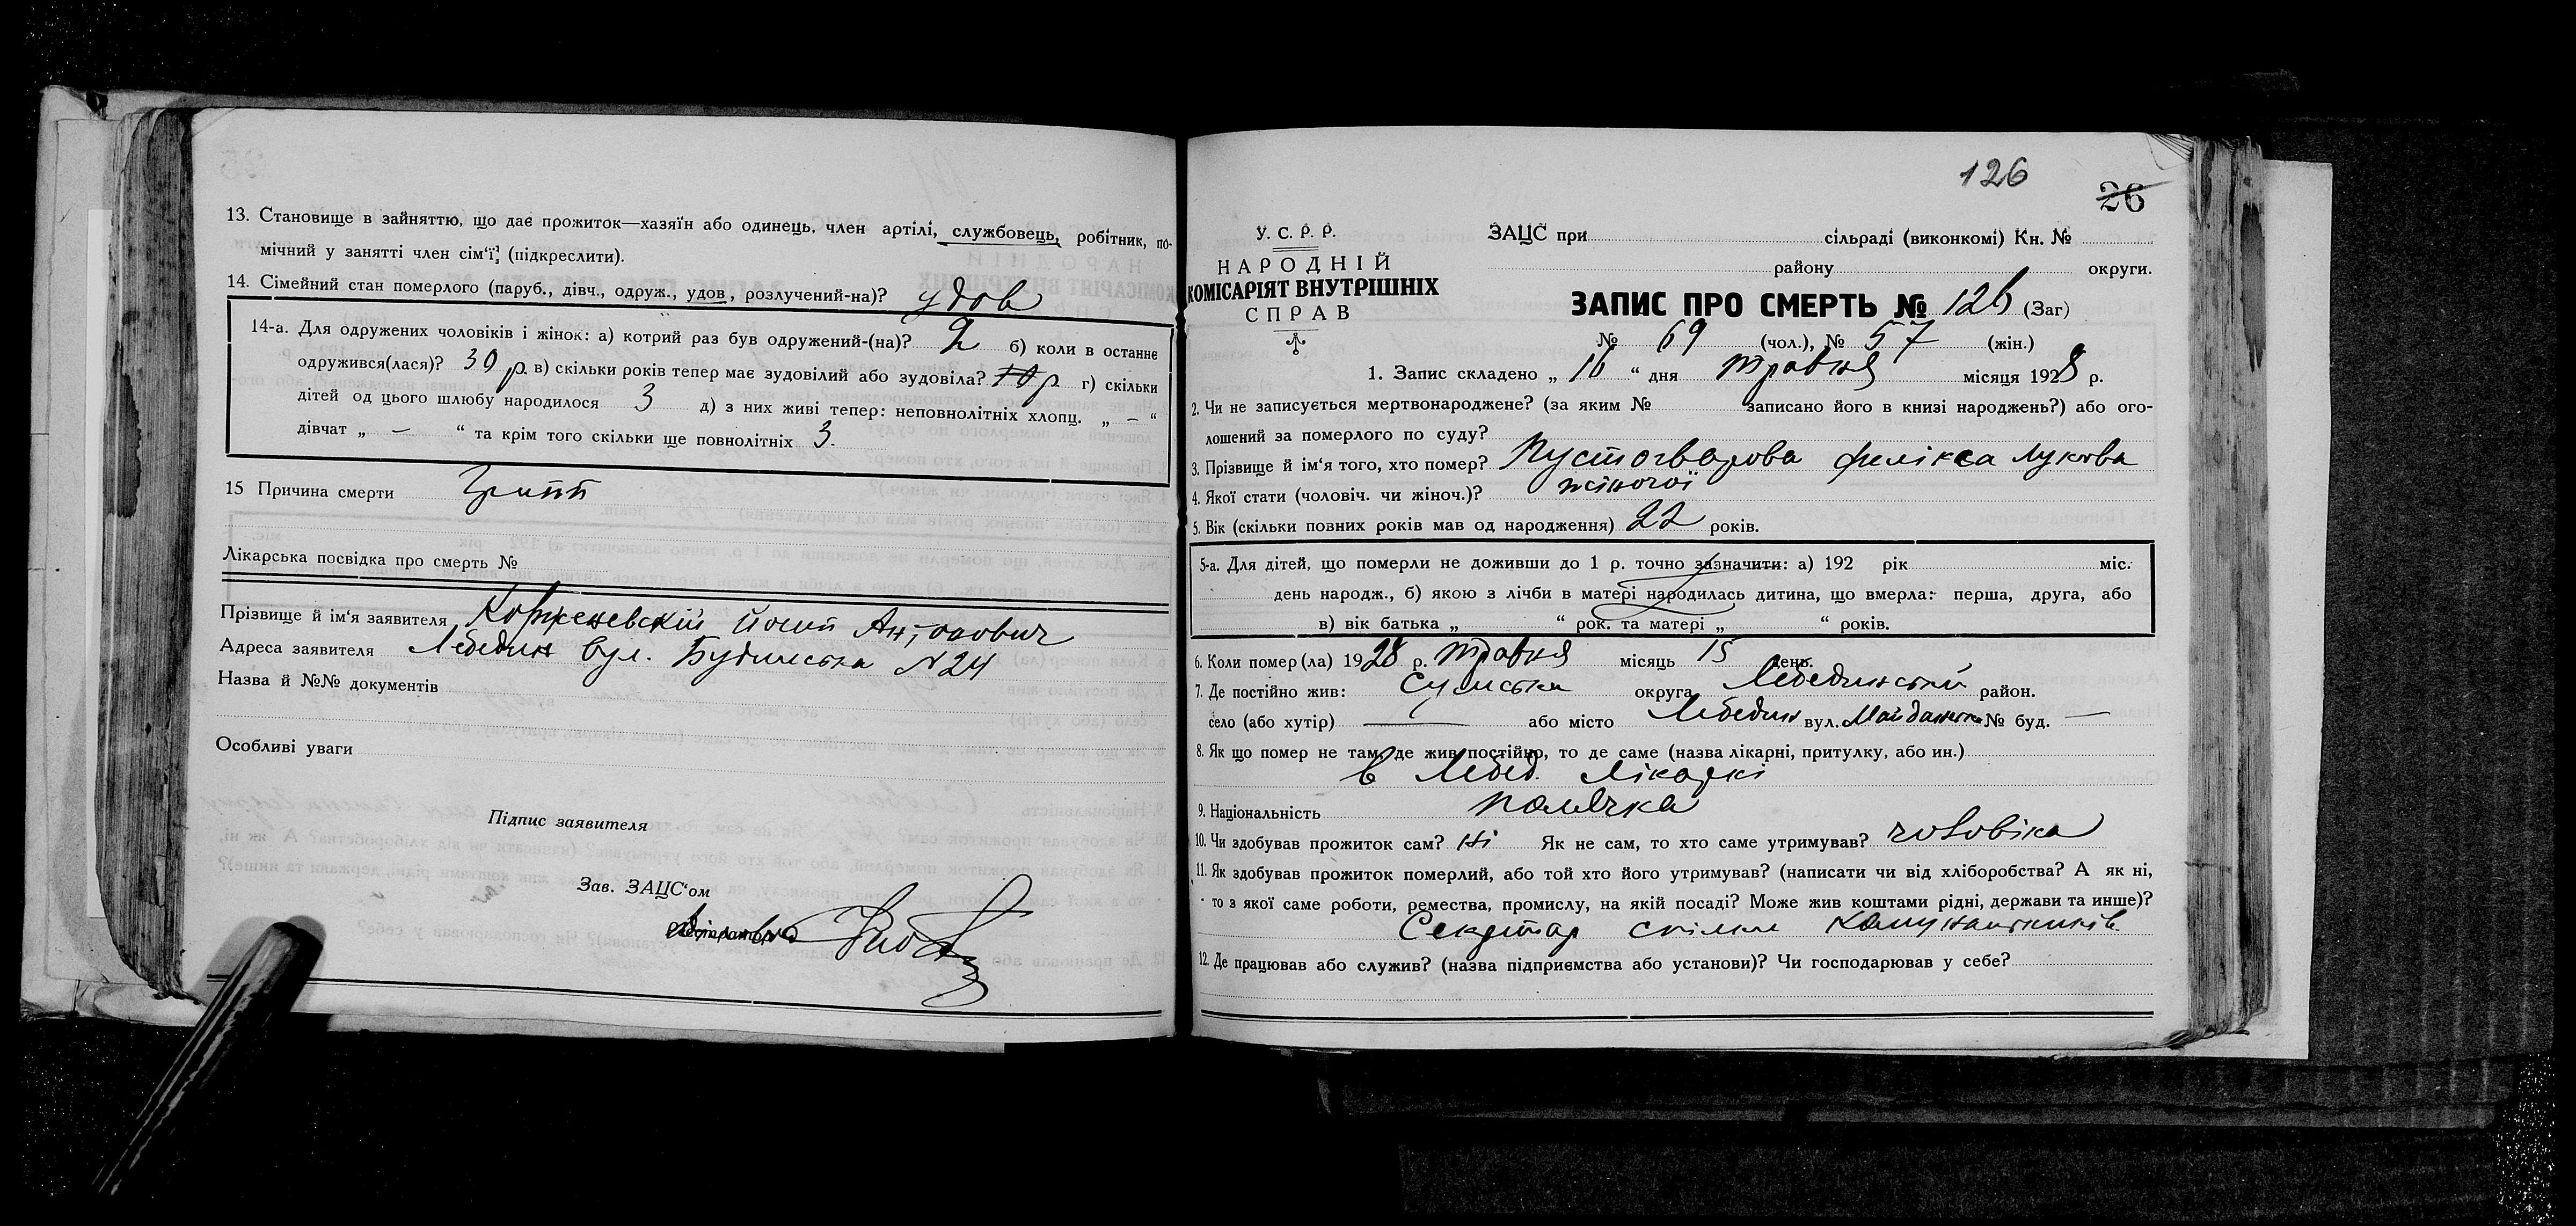 13. Становище в зайняттю, що дає прожиток—хазяїн або одинець, член артілі, службовець, робітник, по-
мічний у занятті член сім‘ї, (підкреслити).
14. Сімейний стан померлого (паруб., дівч., одруж., удов, розлучений-на)? удов
14-а. Для одружених чоловіків і жінок: а) котрий раз був одружений-(на)? 2 б) коли в останнє
одружився(лася)? 30 р. в) скільки років тепер має зудовілий або зудовіла? р г) скільки
дітей од цього шлюбу народилося 3 д) з них живі тепер: неповнолітніх хлопц. „ – “
дівчат „ – “ та крім того скільки ще повнолітніх 3.
15 Причина смерти Грипп
Лікарська посвідка про смерть №
Прізвище й ім‘я заявителя Корженевскій Йосип Антонович
Адреса заявителя Лебедин вул. Будилська N 24
Назва й №№ документів
Особливі уваги
Підпис заявителя
Зав. ЗАЦС‘ом
126
26
У. С. Р. Р.
НАРОДНІЙ
КОМІСАРІЯТ ВНУТРІШНІХ
СПРАВ
ЗАЦС при сільраді (виконкомі) Кн. №
району округи.
ЗАПИС ПРО СМЕРТЬ № 126 (Заг)
№ 69 (чол.), № 57 (жін.)
1. Запис складено „ 16 “ дня травня місяця 1928 р.
2. Чи не записується мертвонароджене? (за яким № записано його в книзі народжень?) або ого-
лошений за померлого по суду?
3. Прізвище й ім‘я того, хто помер? Пустогварова Фелікса Луківа
4. Якої стати (чоловіч. чи жіноч.)? жіночої
5. Вік (скільки повних років мав од народження) 22 років.
5-а. Для дітей, що померли не доживши до 1 р. точно зазначити: а) 192 рік міс.
день народж., б) якою з лічби в матері народилась дитина, що вмерла: перша, друга, або
в) вік батька „ “ рок. та матері „ “ років.
6. Коли помер(ла) 1928 р. травня місяць 15 день.
7. Де постійно жив: Сумська округа Лебединський район.
село (або хутір) — або місто Лебедин вул. № буд. —
8. Як що помер не там, де жив постійно, то де саме (назва лікарні, притулку, або ин.)
в Лебед. Лікарні
9. Національність полячка
10. Чи здобував прожиток сам? Ні Як не сам, то хто саме утримував? чоловіка
11. Як здобував прожиток померлий, або той хто його утримував? (написати чи від хліборобства? А як ні,
то з якої саме роботи, ремества, промислу, на якій посаді? Може жив коштами рідні, держави та инше)?
Секретар спілки
12. Де працював або служив? (назва підприємства або установи)? Чи господарював у себе?